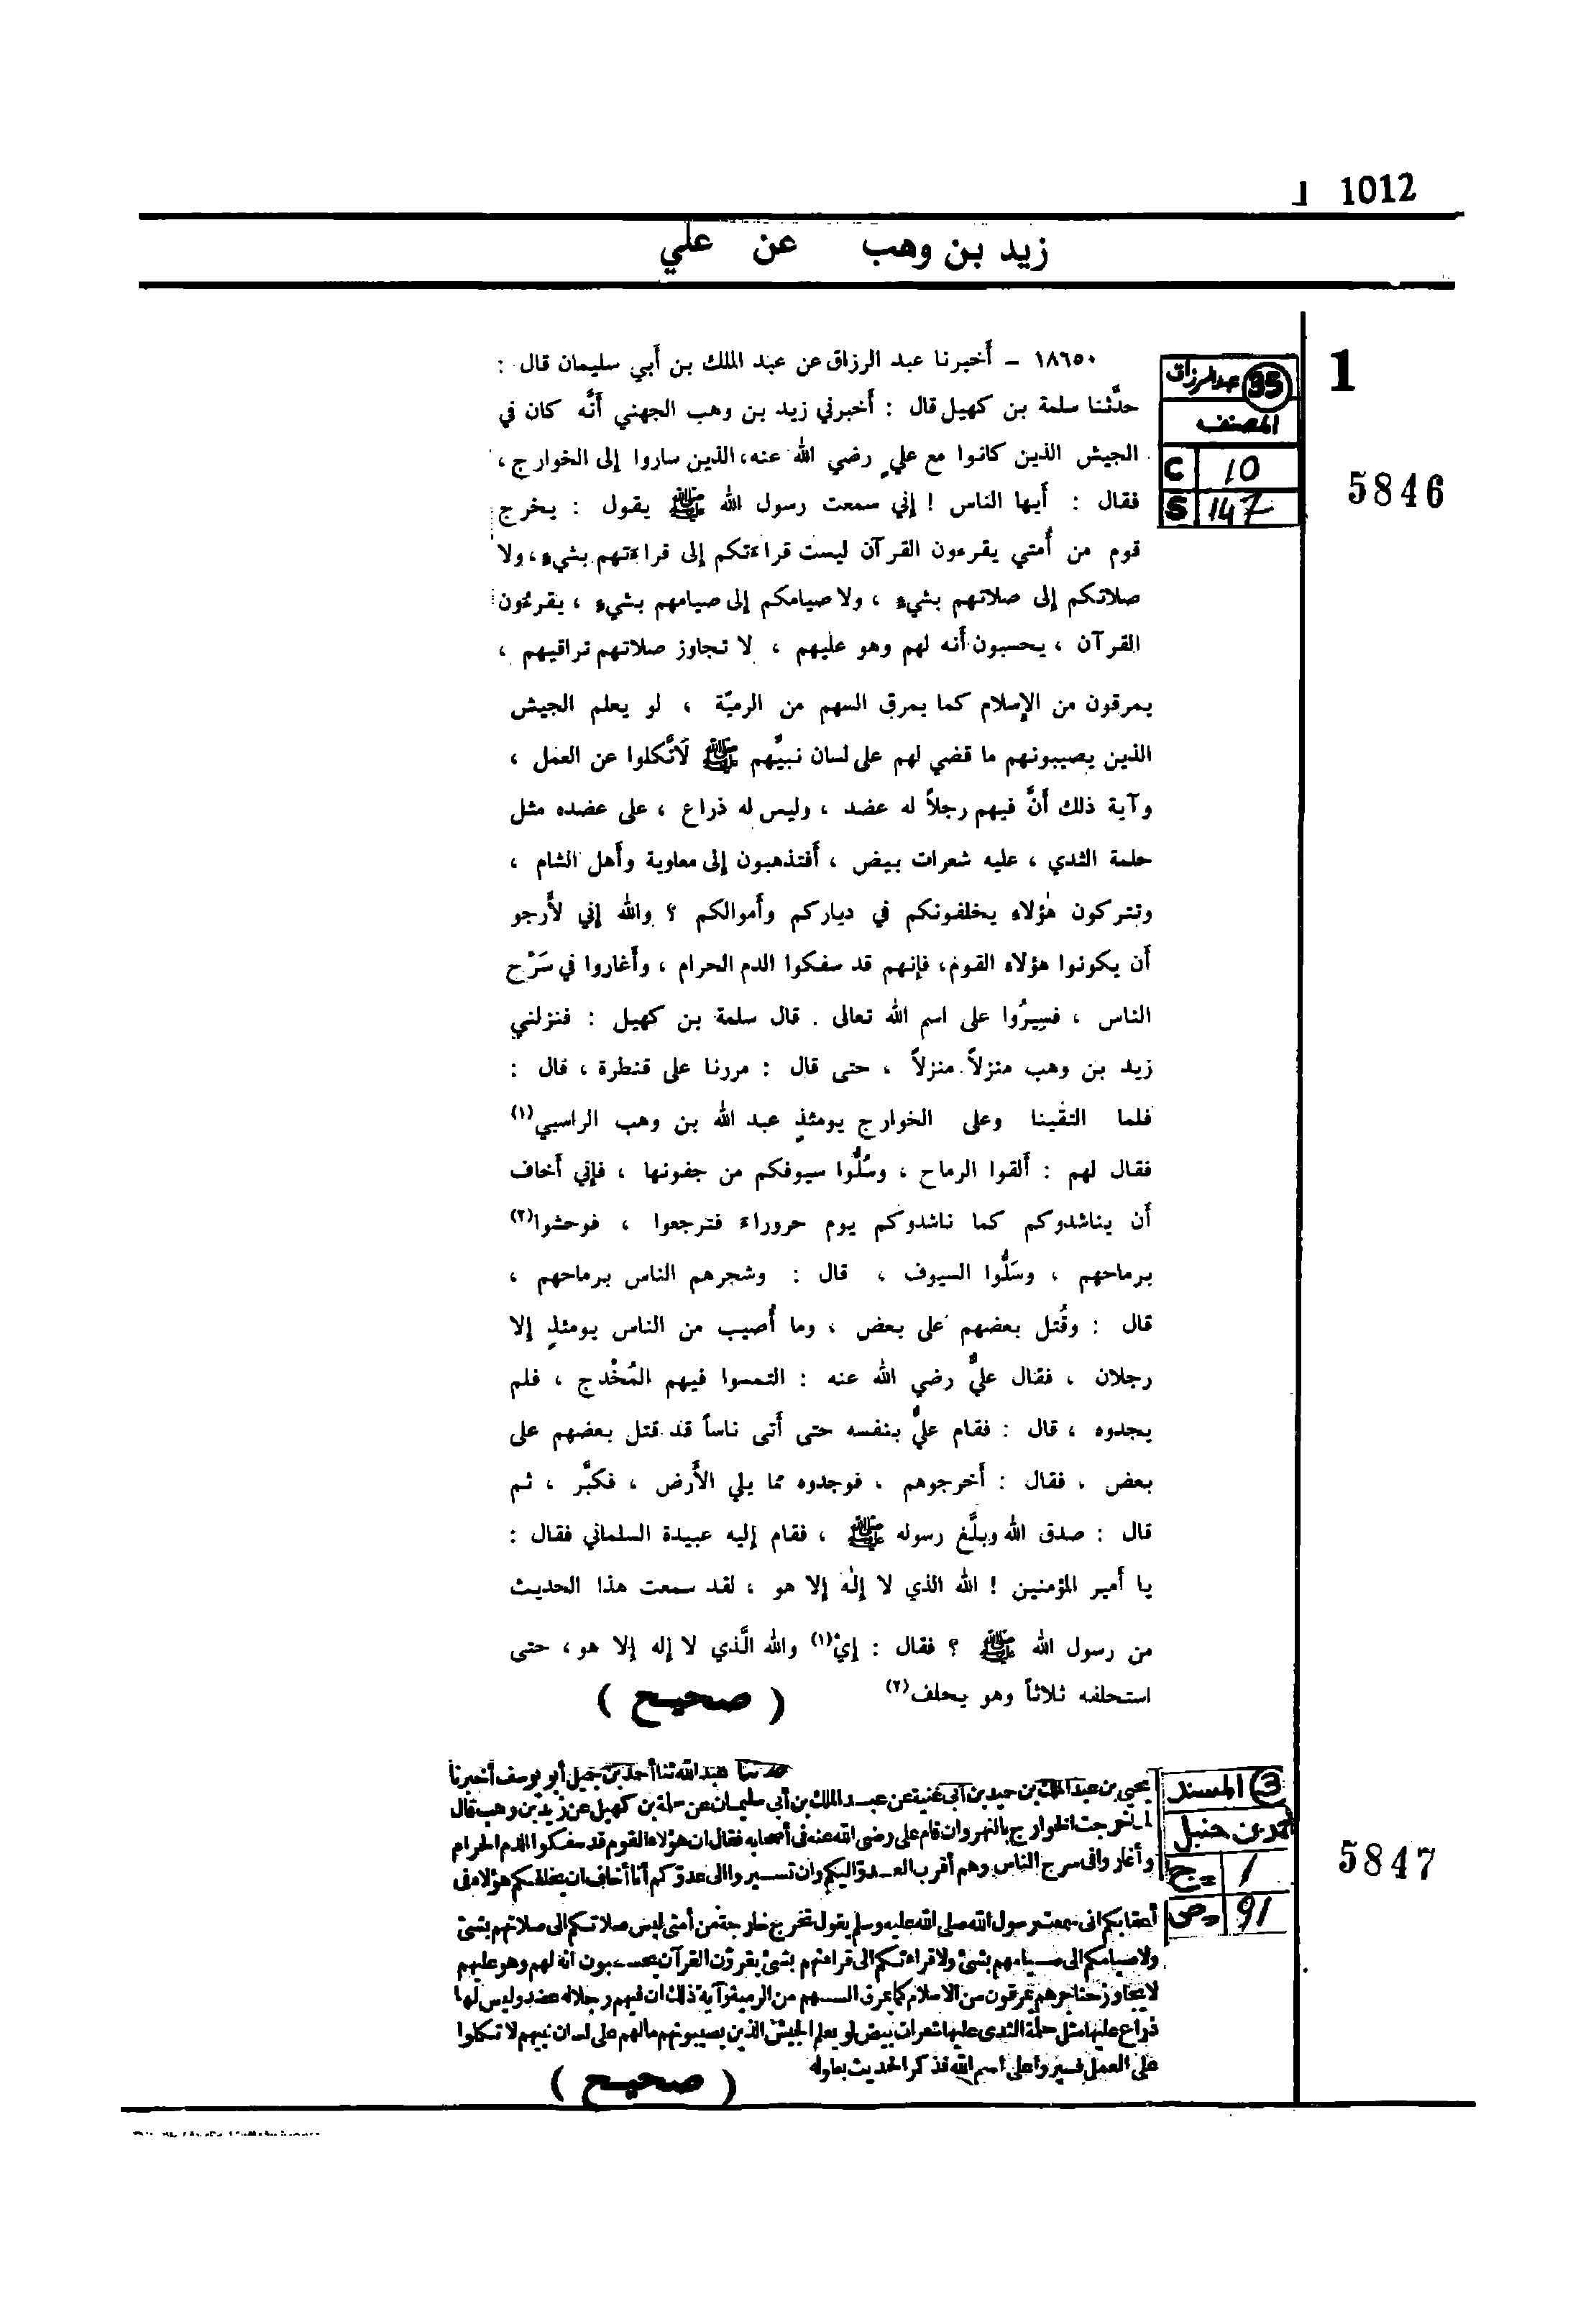 1012 ـلـ
زيد بن وهب عن علي
١٨٦٥٠ – أخبرنا عبد الرزاق عن عبد الملك بن أبي سليمان قال :
حدَّثنا سلمة بن كهيل قال : أخبرني زيد بن وهب الجهني أنَّه كان في
الجيش الذين كانوا مع عليٍ رضي الله عنه، الذين ساروا إلى الخوارج ،
فقال : أيها الناس ! إني سمعت رسول الله ﷺ يقول : يخرج
قوم من أُمتي يقرءون القرآن ليست قراءتكم إلى قراءتهم بشيء ، ولا
صلاتكم إلى صلاتهم بشيء ، ولا صيامكم إلى صيامهم بشيء ، يقرءُون
القرآن ، يحسبون أنه لهم وهو عليهم ، لا تجاوز صلاتهم تراقيهم ،
يمرقون من الإسلام كما يمرق السهم من الرميّة ، لو يعلم الجيش
الذين يصيبونهم ما قضي لهم على لسان نبيِّهم ﷺ لَاتَّكلوا عن العمل ،
وآية ذلك أنَّ فيهم رجلاً له عضد ، وليس له ذراع ، على عضده مثل
حلمة الثدي ، عليه شعرات بيض ، أفتذهبون إلى معاوية وأهل الشام ،
وتتركون هٰؤلاء يخلفونكم في دياركم وأموالكم ؟ والله إني لأرجو
أن يكونوا هؤلاء القوم، فإنهم قد سفكوا الدم الحرام ، وأغاروا في سَرْح
الناس ، فسِيرُوا على اسم الله تعالى . قال سلمة بن كهيل : فنزلني
زيد بن وهب منزلاً منزلاً ، حتى قال : مررنا على قنطرة ، قال :
فلما التقينا وعلى الخوارج يومئذٍ عبد الله بن وهب الراسبي (١)
فقال لهم : ألقوا الرماح ، وسُلُّوا سيوفكم من جفونها ، فإني أخاف
أن يناشدوكم كما ناشدوكم يوم حروراء فترجعوا ، فوحشوا (٢)
برماحهم ، وسَلُّوا السيوف ، قال : وشجرهم الناس برماحهم ،
قال : وقُتل بعضهم على بعض ، وما أُصيب من الناس يومئذٍ إلا
رجلان ، فقال عليٌّ رضي الله عنه : التمسوا فيهم المُخْدج ، فلم
يجدوه ، قال : فقام عليٌّ بنفسه حتى أتى ناساً قد قتل بعضهم على
بعض ، فقال : أخرجوهم ، فوجدوه مما يلي الأرض ، فكبَّر ، ثم
قال : صدق الله وبلَّغ رسوله ﷺ ، فقام إليه عبيدة السلماني فقال :
يا أمير المؤمنين ! الله الذي لا إلٰه إلا هو ، لقد سمعت هذا الحديث
من رسول الله ﷺ ؟ فقال : إيْ (١) والله الَّذي لا إله إلا هو ، حتى
استحلفه ثلاثاً وهو يحلف (٢)
( صحيح )
35 عبد الرزاق
المصنف
C 10
S 147
1
5846
حدثنا عبد الله ثنا أحمد بن جميل أبو يوسف أخبرنا
يحيى بن عبد الملك بن حميد بن أبي غنية عن عبد الملك بن أبي سليمان عن سلمة بن كهيل عن زيد بن وهب قال
لما خرجت الخوارج بالنهروان قام على رضى الله عنه فى أصحابه فقال ان هؤلاء القوم قد سفكوا الدم الحرام
وأغاروا فى سرح الناس وهم أقرب العدو اليكم وان تسيروا الى عدوكم أنا أخاف ان يخلفكم هؤلاء فى
أعقابكم انى سمعت رسول الله صلى الله عليه وسلم يقول تخرج خارجة من أمتى ليس صلاتكم الى صلاتهم بشئ
ولا صيامكم الى صيامهم بشئ ولا قراءتكم الى قراءتهم بشئ يقرؤن القرآن يحسبون انه لهم وهو عليهم
لا يجاوز حناجرهم يمرقون من الاسلام كما يمرق السهم من الرمية وآية ذلك ان فيهم رجلا له عضد وليس لها
ذراع عليها مثل حلمة الثدى عليها شعرات بيض لو يعلم الجيش الذين يصيبونهم مالهم على لسان نبيهم لاتكلوا
على العمل فسيروا على اسم الله فذكر الحديث بطوله
( صحيح )
3 المسند
أحمد بن حنبل
ج = 1
ص = 91
5847